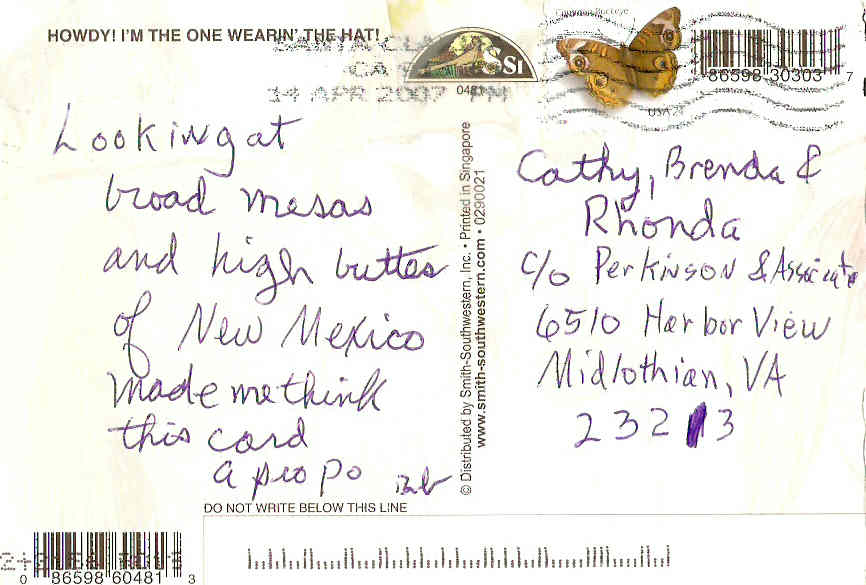 HOWDY! I'M THE ONE WEARIN' THE HAT!
SANTA CLA
CA
14 APR 2007 PM
SSI
0481
Common Buckeye
USA 24
86598 30303 7
Looking at
broad mesas
and high buttes
of New Mexico
made me think
this card
a pro po
Bab
© Distributed by Smith-Southwestern, Inc. • Printed in Singapore
www.smith-southwestern.com • 0290021
Cathy, Brenda &
Rhonda
c/o Perkinson & Associate
6510 Harbor View
Midlothian, VA
232 3
DO NOT WRITE BELOW THIS LINE
0 86598 60481 3